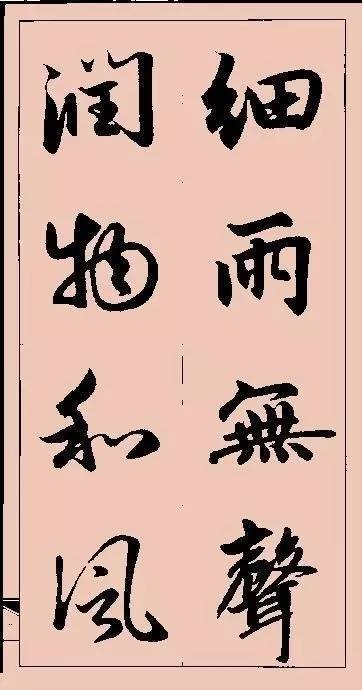 細雨無聲
潤物和風